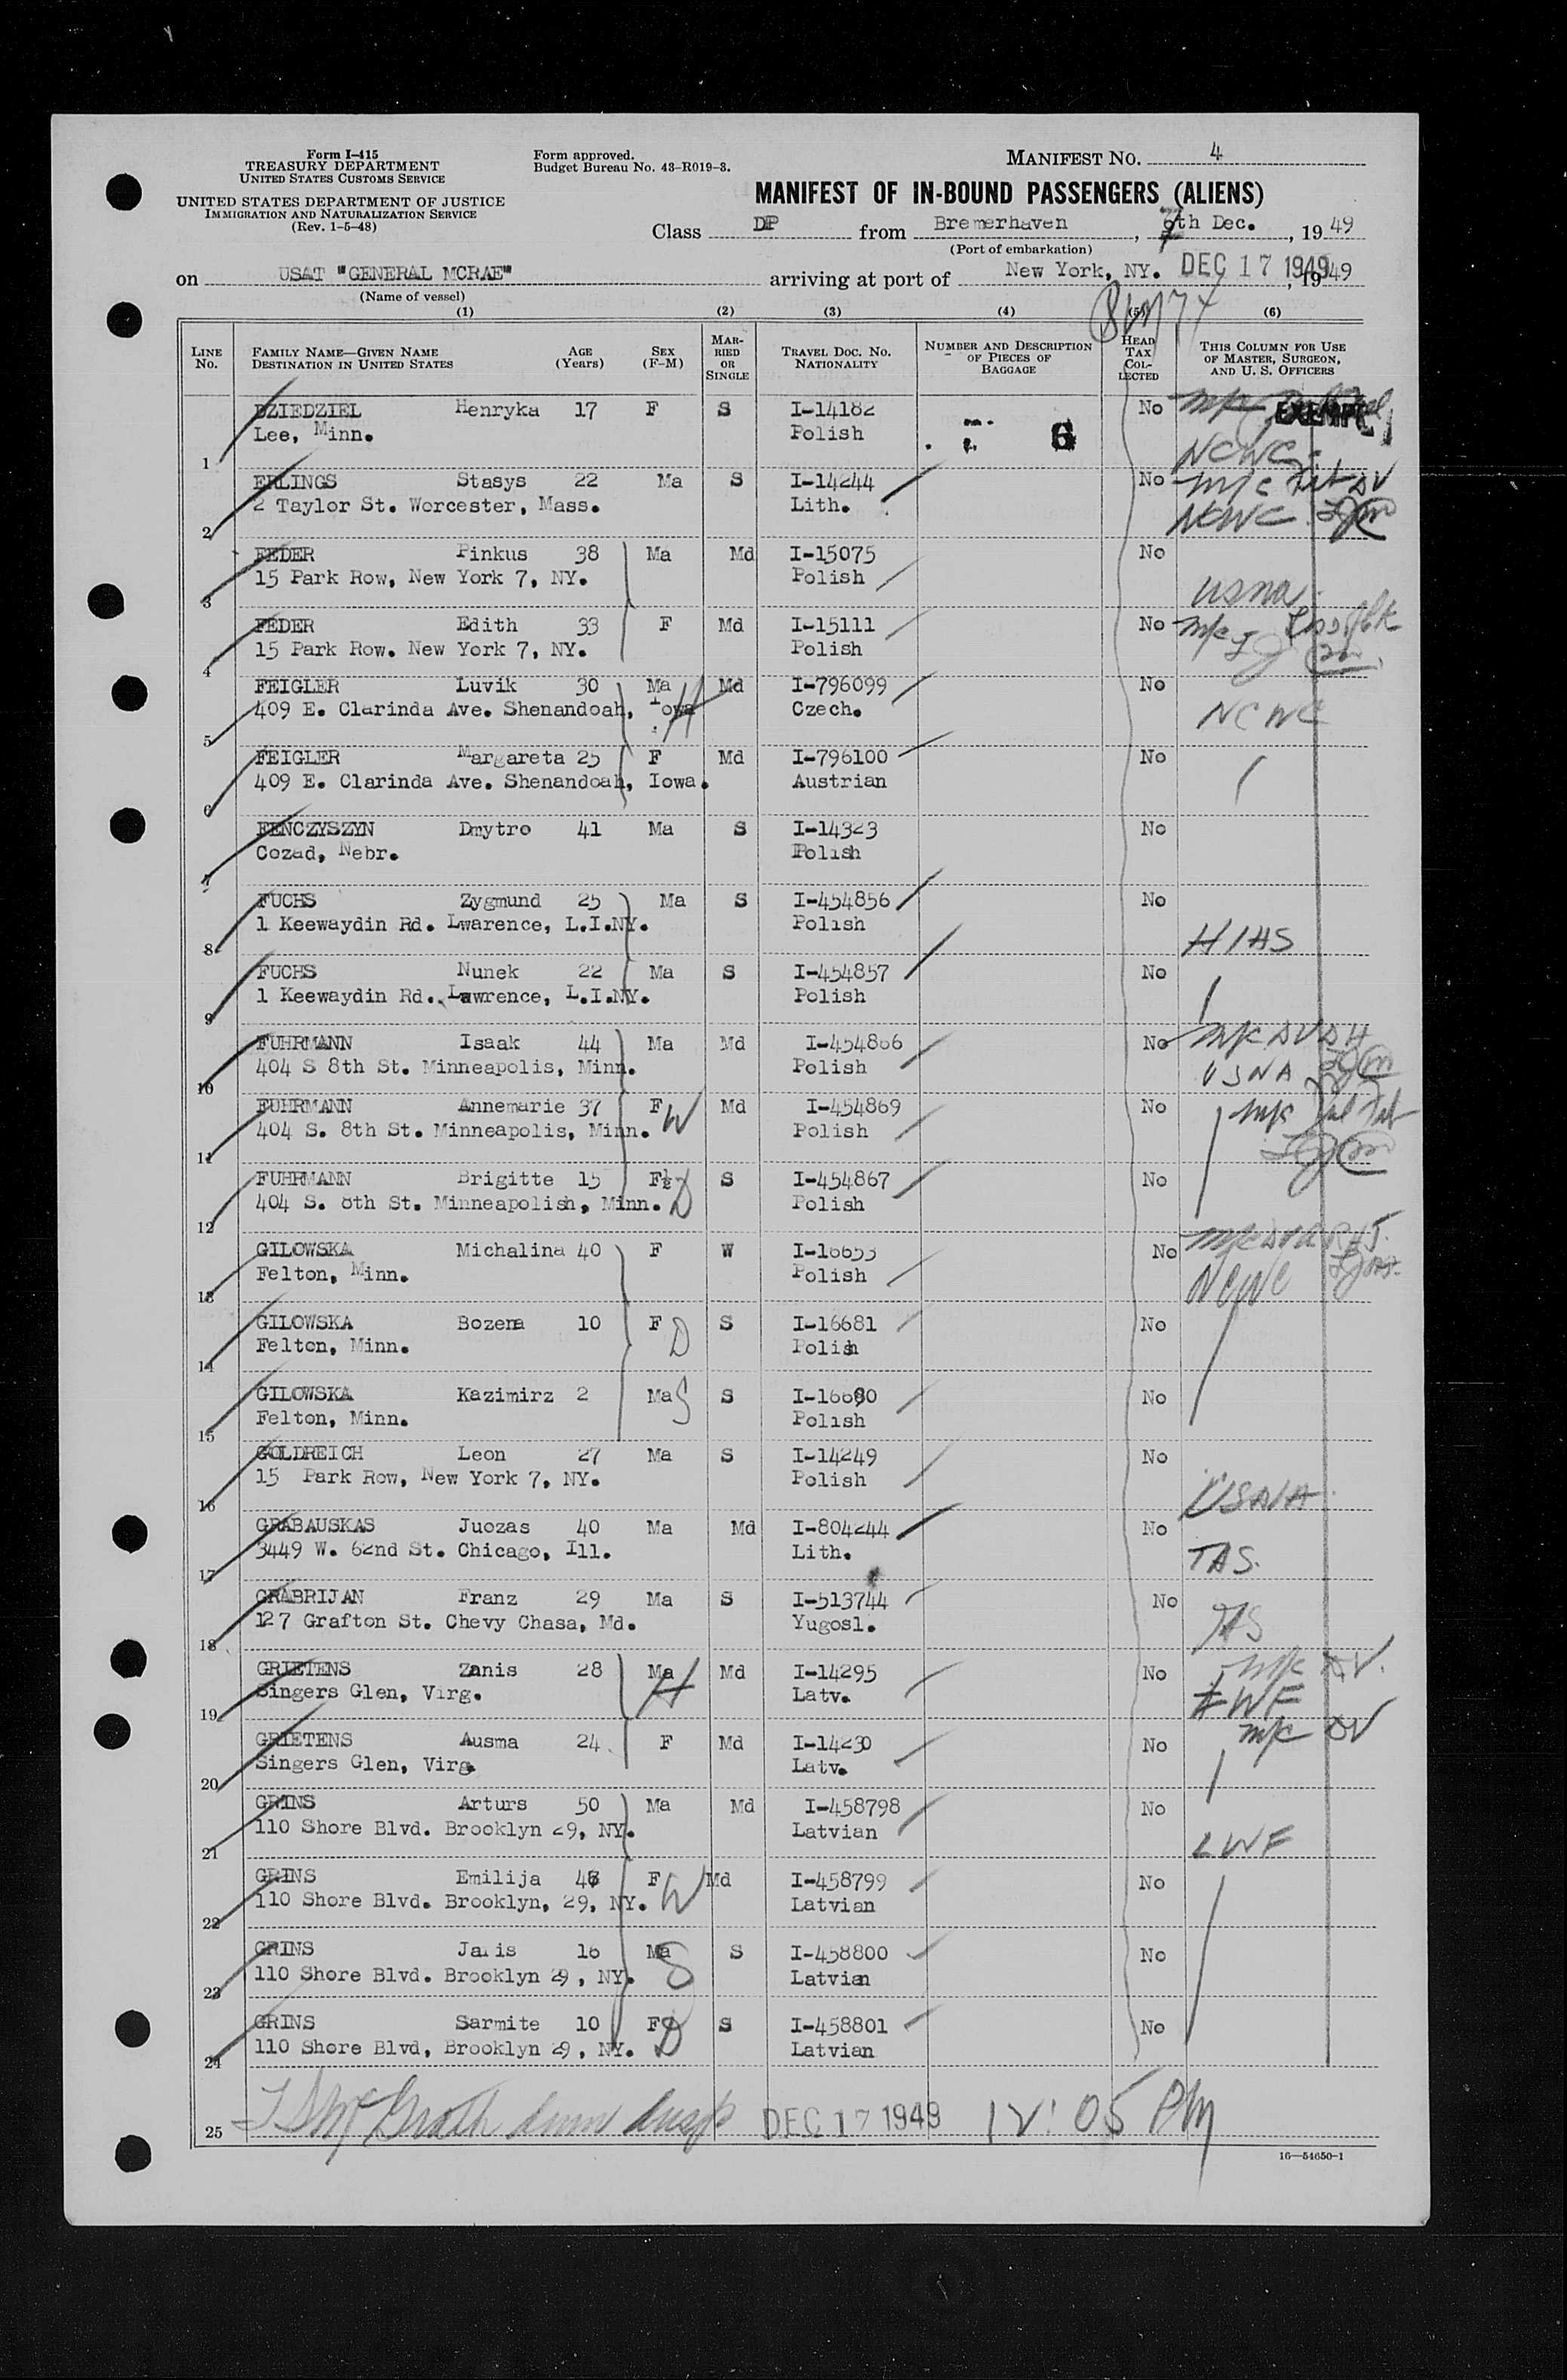 Form I-415
TREASURY DEPARTMENT
UNITED STATES CUSTOMS SERVICE
UNITED STATES DEPARTMENT OF JUSTICE
IMMIGRATION AND NATURALIZATION SERVICE
(Rev. 1-5-48)
Form approved.
Budget Bureau No. 43-R019-3.
MANIFEST NO. 4
MANIFEST OF IN-BOUND PASSENGERS (ALIENS)
Class DP from Bremerhaven, 7th Dec., 1949
(Port of embarkation)
on USAT "GENERAL MCRAE" arriving at port of New York, NY. DEC 17 1949, 1949
(Name of vessel)
(1) (2) (3) (4) (5) (6)
LINE No. FAMILY NAME—GIVEN NAME DESTINATION IN UNITED STATES AGE (Years) SEX (F-M) MARRIED OR SINGLE TRAVEL DOC. NO. NATIONALITY NUMBER AND DESCRIPTION OF PIECES OF BAGGAGE HEAD TAX COLLECTED THIS COLUMN FOR USE OF MASTER, SURGEON, AND U. S. OFFICERS
DZIEDZIEL Henryka 17 F S I-14182 No EXEMPT
Lee, Minn. Polish 6
1 NCWC
ERLINGS Stasys 22 Ma S I-14244 No m/c
2 Taylor St. Worcester, Mass. Lith. NCWC
2
FEDER Pinkus 38 Ma Md I-15075 No
15 Park Row, New York 7, NY. Polish
3 USNA
FEDER Edith 33 F Md I-15111 No m/c
15 Park Row. New York 7, NY. Polish
4
FEIGLER Luvik 30 Ma Md I-796099 No
409 E. Clarinda Ave. Shenandoah, Iowa H Czech. NCWC
5
FEIGLER Margareta 25 F Md I-796100 No
409 E. Clarinda Ave. Shenandoah, Iowa. Austrian
6
FENCZYSZYN Dmytro 41 Ma S I-14323 No
Cozad, Nebr. Polish
7
FUCHS Zygmund 25 Ma S I-454856 No
1 Keewaydin Rd. Lwarence, L.I.NY. Polish HIAS
8
FUCHS Nunek 22 Ma S I-454857 No
1 Keewaydin Rd. Lawrence, L.I.NY. Polish
9
FUHRMANN Isaak 44 Ma Md I-454866 No m/c
404 S 8th St. Minneapolis, Minn. Polish USNA
10
FUHRMANN Annemarie 37 F W Md I-454869 No m/c
404 S. 8th St. Minneapolis, Minn. Polish
11
FUHRMANN Brigitte 15 F D S I-454867 No
404 S. 8th St. Minneapolish, Minn. Polish
12
GILOWSKA Michalina 40 F W I-16653 No
Felton, Minn. Polish NCWC
13
GILOWSKA Bozena 10 F D S I-16681 No
Felton, Minn. Polish
14
GILOWSKA Kazimirz 2 Ma S S I-16680 No
Felton, Minn. Polish
15
GOLDREICH Leon 27 Ma S I-14249 No
15 Park Row, New York 7, NY. Polish USNA
16
GRABAUSKAS Juozas 40 Ma Md I-804244 No
3449 W. 62nd St. Chicago, Ill. Lith. TAS.
17
GRABRIJAN Franz 29 Ma S I-513744 No
127 Grafton St. Chevy Chasa, Md. Yugosl. TAS
18
GRIETENS Zanis 28 Ma H Md I-14295 No m/c DV.
Singers Glen, Virg. Latv. LWF
19
GRIETENS Ausma 24 F Md I-14230 No m/c DV
Singers Glen, Virg. Latv.
20
GRINS Arturs 50 Ma Md I-458798 No
110 Shore Blvd. Brooklyn 29, NY. Latvian LWF
21
GRINS Emilija 46 F W Md I-458799 No
110 Shore Blvd. Brooklyn, 29, NY. Latvian
22
GRINS Janis 16 Ma S S I-458800 No
110 Shore Blvd. Brooklyn 29, NY. Latvian
23
GRINS Sarmite 10 F D S I-458801 No
110 Shore Blvd, Brooklyn 29, NY. Latvian
24
25 McGrath DEC 17 1949 12:05 PM
16—54650-1